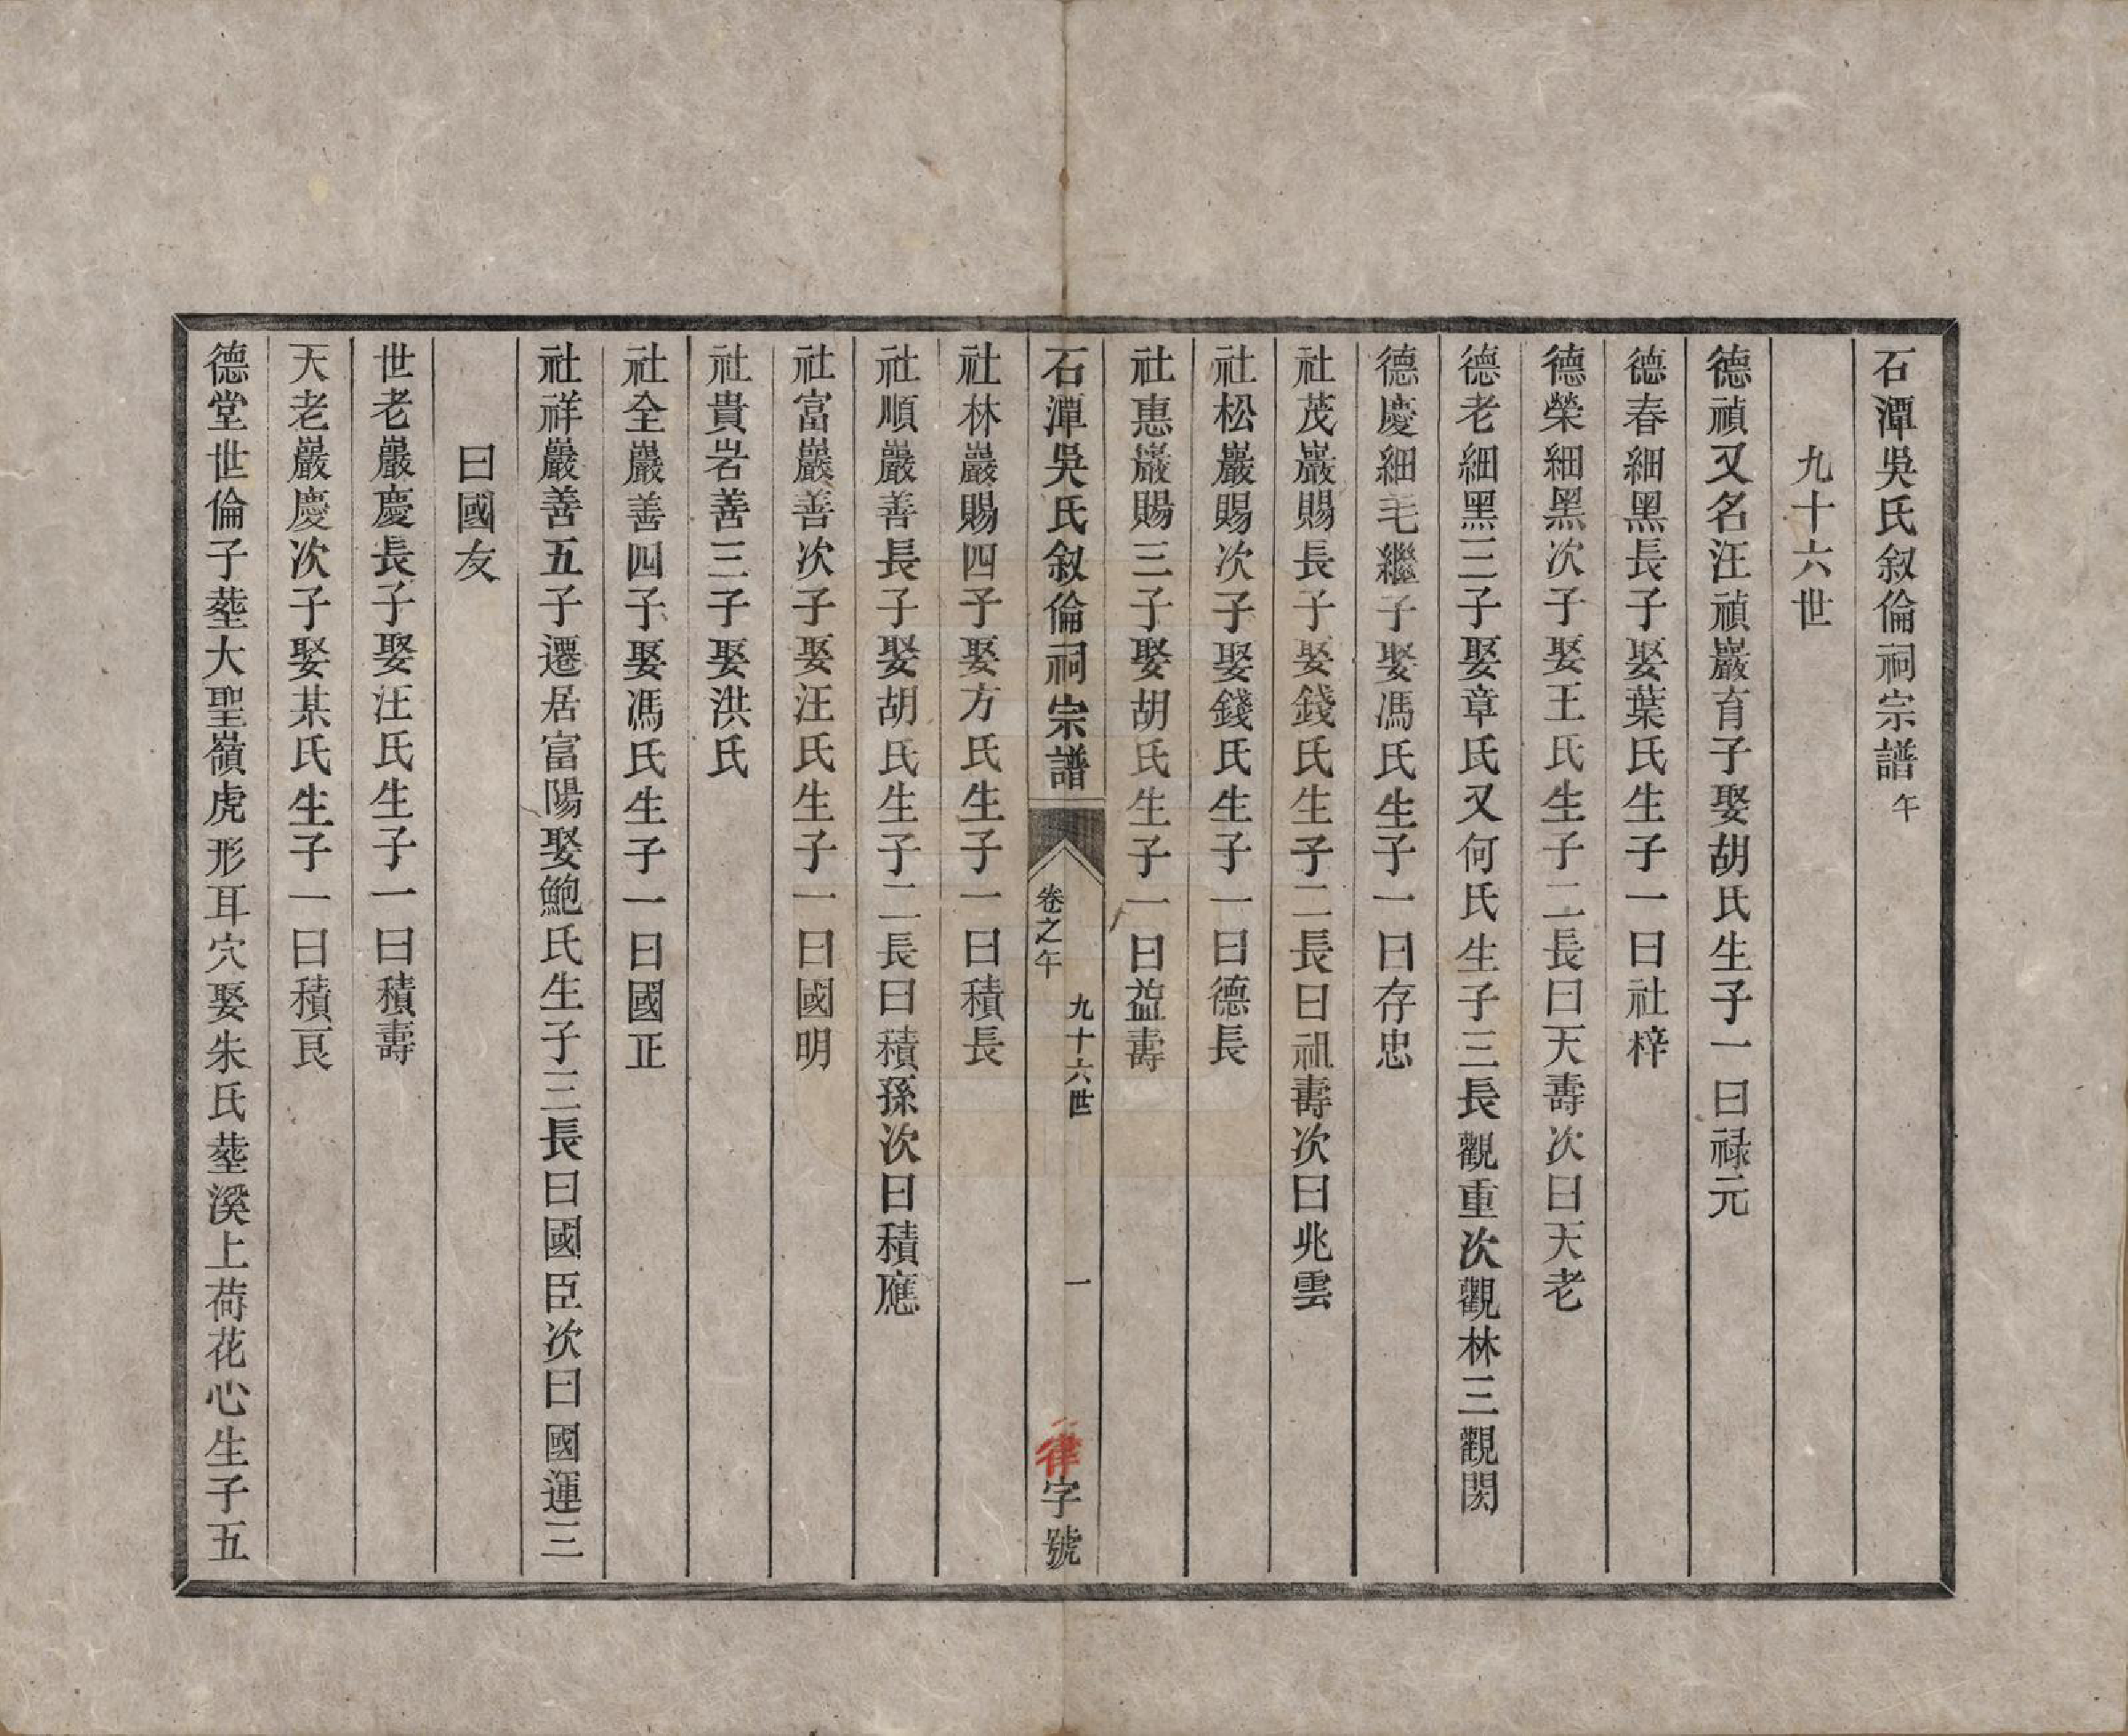 石潭吳氏叙倫祠宗譜午
九十六世
德禎又名汪禎巖育子娶胡氏生子一曰祿元
德春細黑長子娶葉氏生子一曰社梓
德榮細黑次子娶王氏生子二長曰天壽次曰天老
德老細黑三子娶章氏又何氏生子三長觀重次觀林三觀閔
德慶細毛繼子娶馮氏生子一曰存忠
社茂巖賜長子娶錢氏生子二長曰祖壽次曰兆雲
社松巖賜次子娶錢氏生子一曰德長
社惠巖賜三子娶胡氏生子一曰益壽
石潭吳氏叙倫祠宗譜
卷之午
九十六世
一
律字號
社林巖賜四子娶方氏生子一曰積長
社順巖善長子娶胡氏生子二長曰積孫次曰積應
社富巖善次子娶汪氏生子一曰國明
社貴岩善三子娶洪氏
社全巖善四子娶馮氏生子一曰國正
社祥巖善五子遷居富陽娶鮑氏生子三長曰國臣次曰國運三
曰國友
世老巖慶長子娶汪氏生子一曰積壽
天老巖慶次子娶某氏生子一曰積艮
德堂世倫子塟大聖嶺虎形耳穴娶朱氏塟溪上荷花心生子五